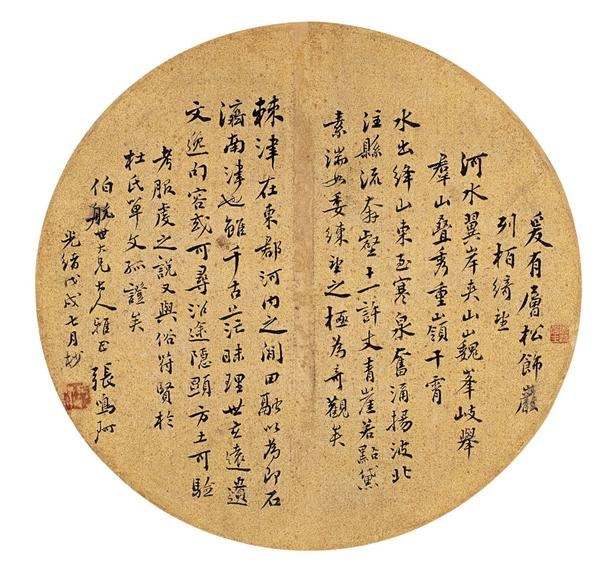 爰有層松飾巖
列柏綺望
河水翼岸夾山巍峯岐舉
羣山叠秀重嶺干霄
水出絳山東至寒泉奮涌揚波北
注縣流奔壑十一許丈青崖若點黛
素湍如委練望之極為奇觀矣
棘津在東郡河内之間田融以為即石
濟南津也雖千古茫昧理世玄遠遺
文逸句容或可尋沿途隱顯方土可驗
考服虔之說又與俗符賢於
杜氏單文孤證矣
伯航世大兄大人雅正 張鳴珂
光緒戊戌七月杪